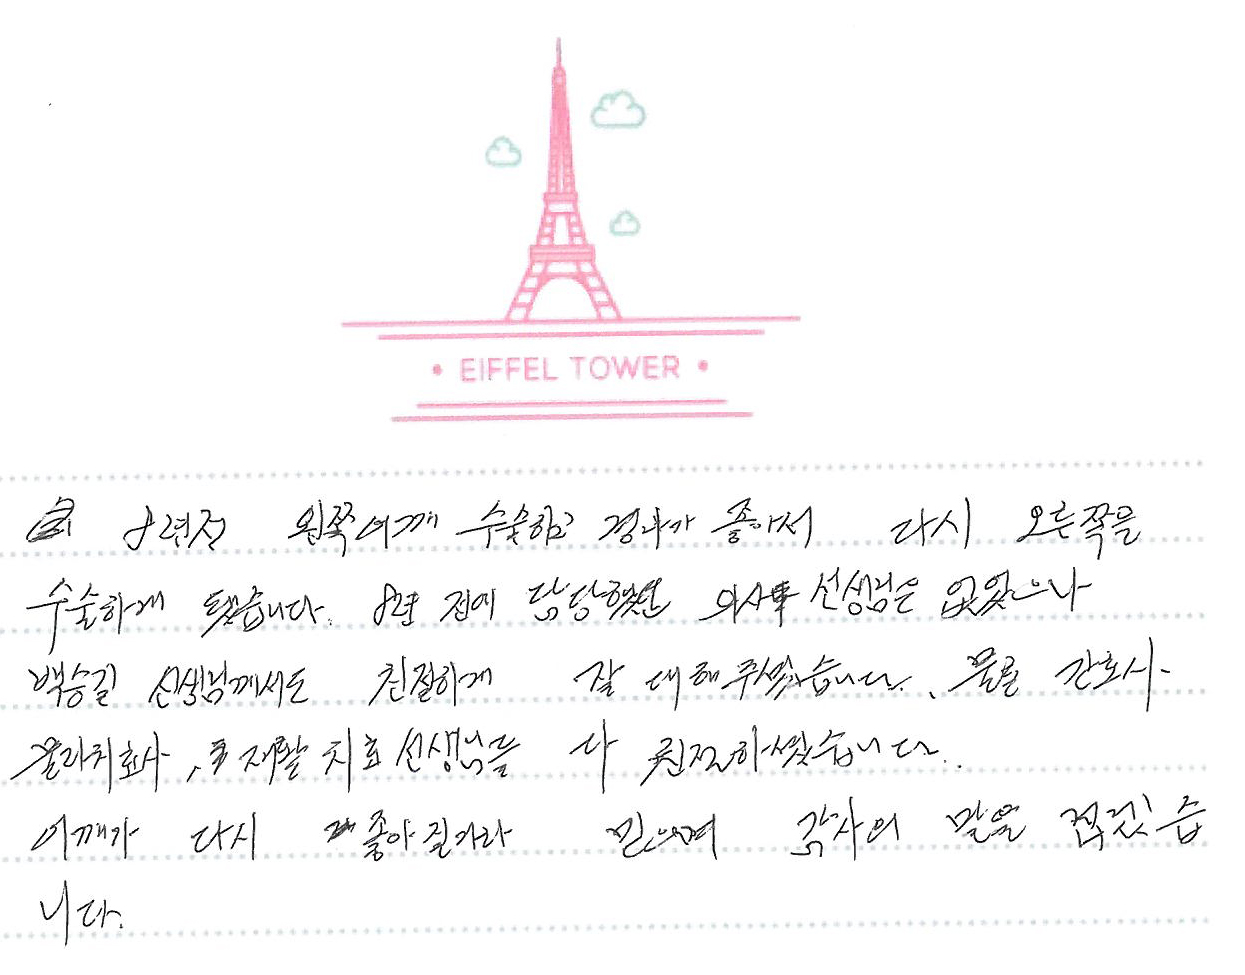 • EIFFEL TOWER •
8년전 왼쪽어깨 수술하고 경과가 좋아서 다시 오른쪽을
수술하게 됐습니다. 8년 전에 담당했던 의사 선생님은 없었으나
백승길 선생님께서도 친절하게 잘 대해주셨습니다. 물론 간호사.
물리치료사, 재활치료선생님들 다 친절하셨습니다..
어깨가 다시 좋아질거라 믿으며 감사의 말을 적겠습
니다.